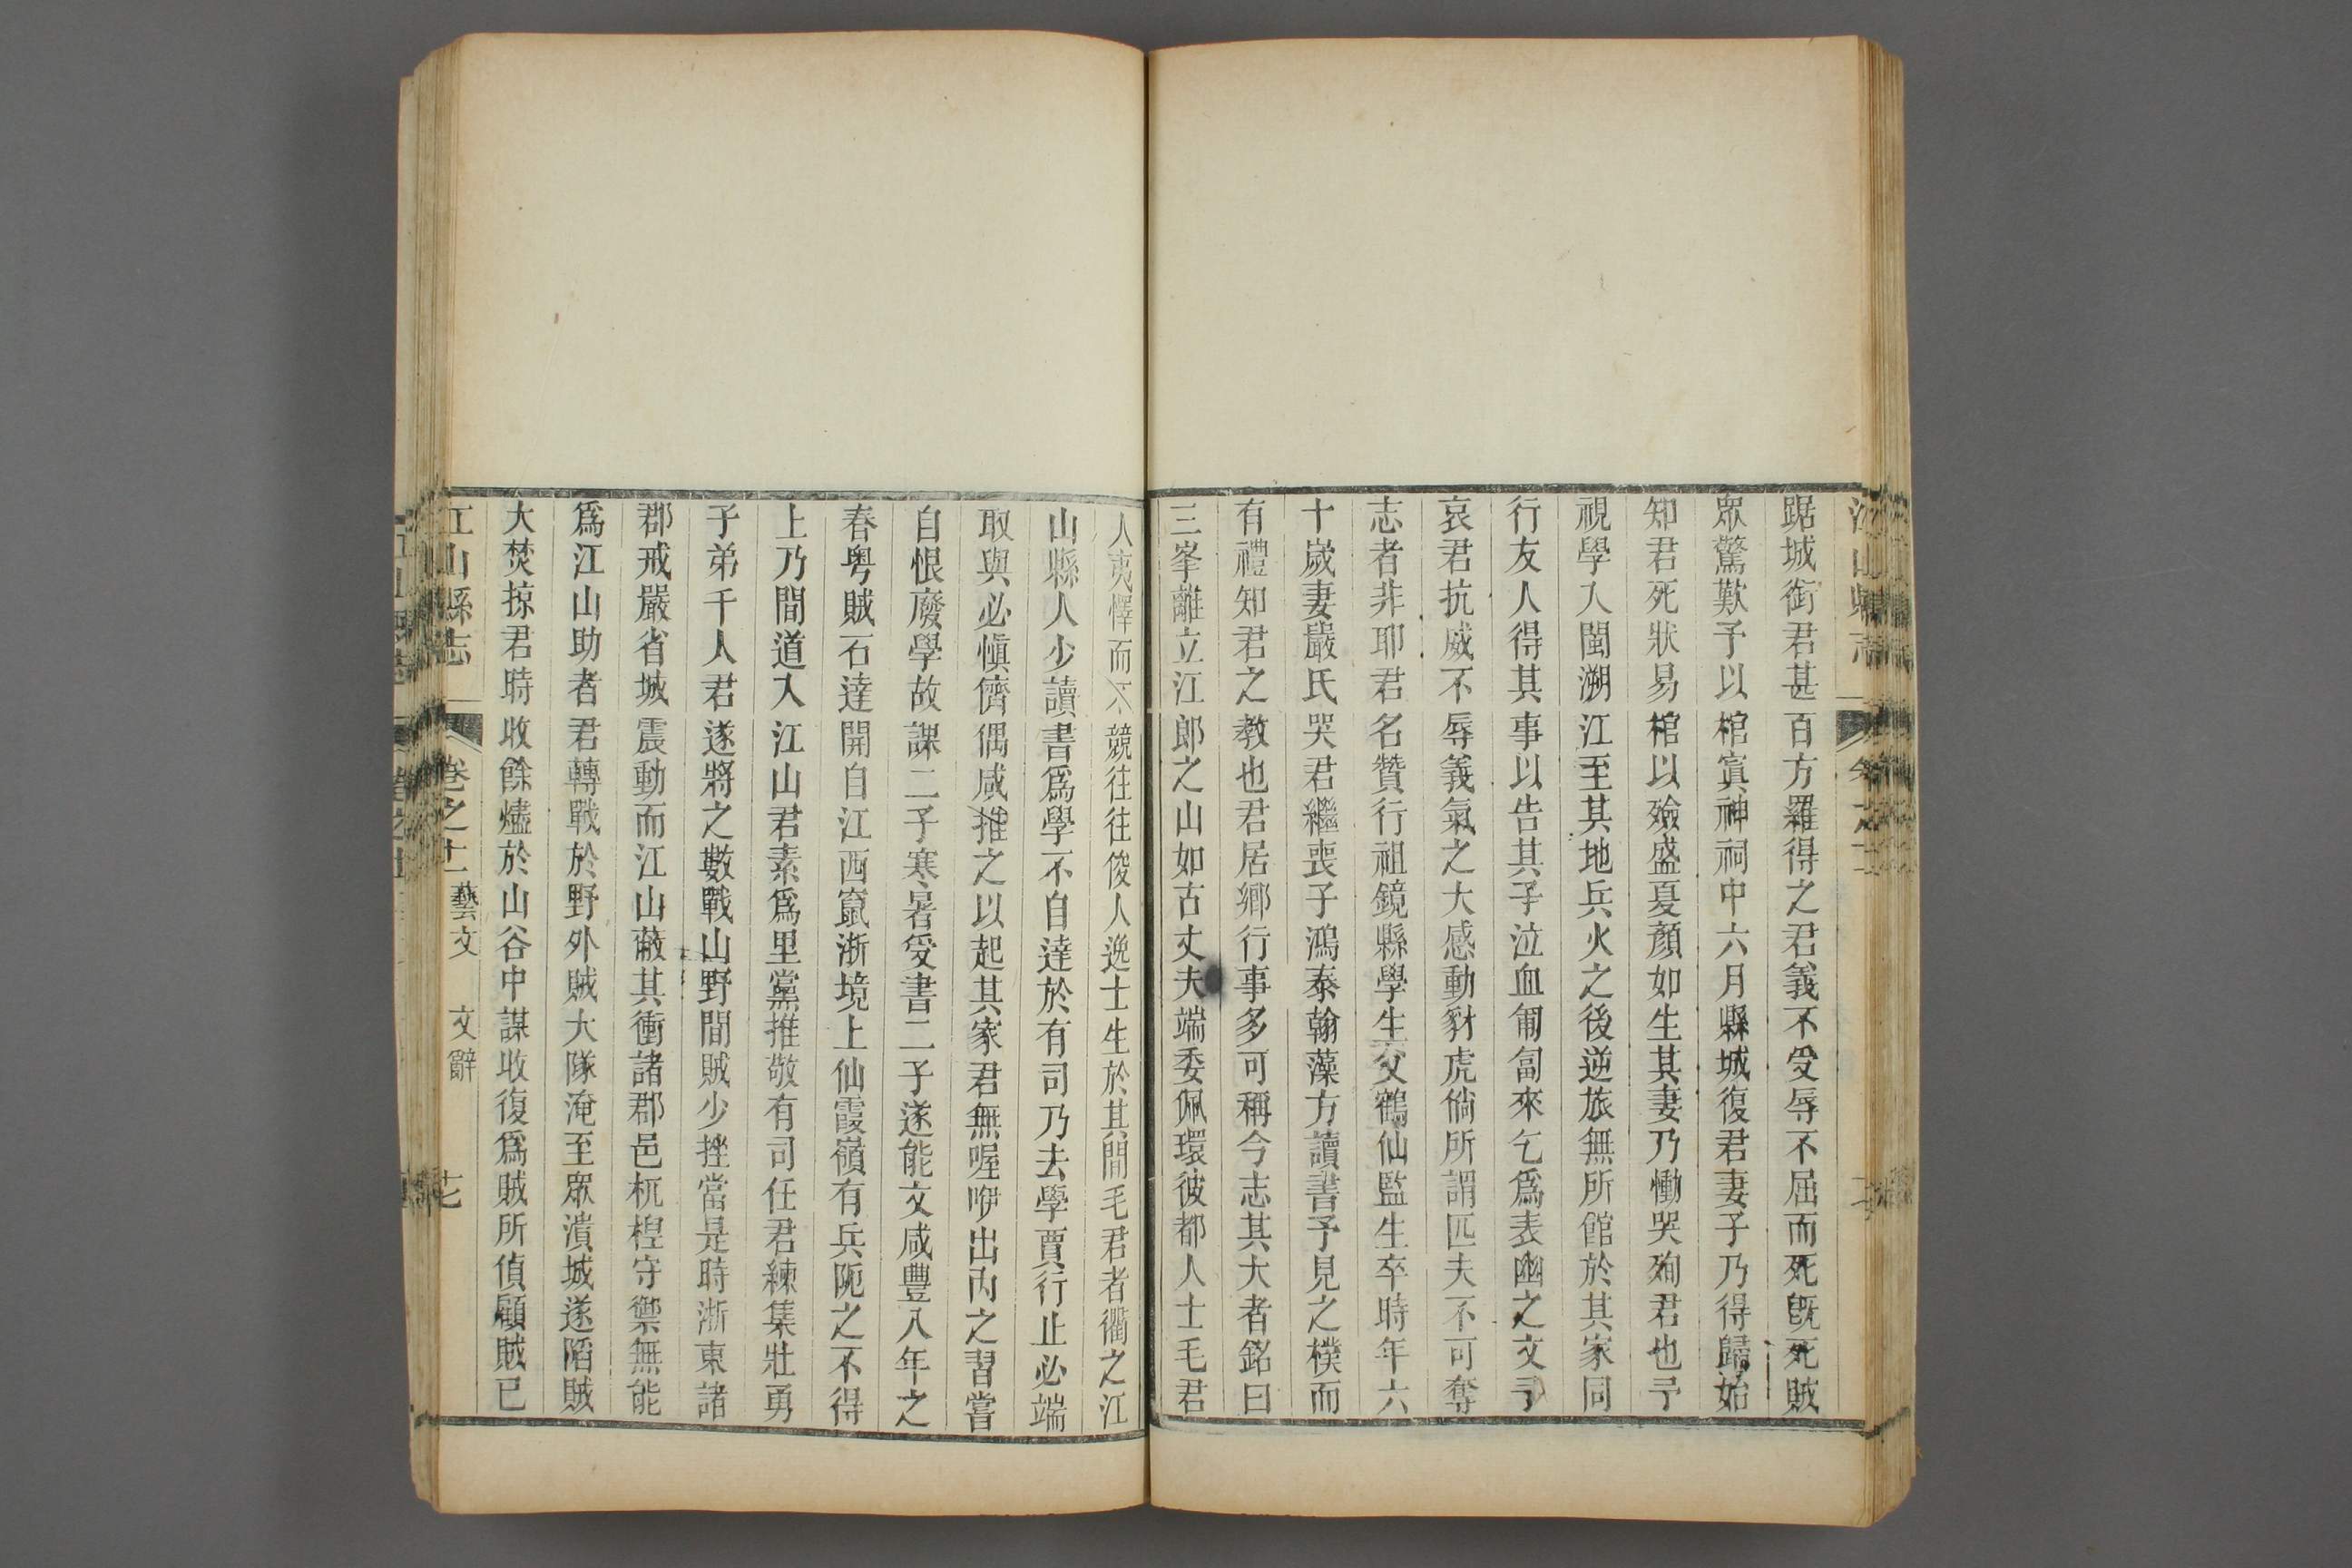 江山縣志
踞城銜君甚百方羅得之君義不受辱不屈而死旣死賊
眾驚歎予以棺寘神祠中六月縣城復君妻子乃得歸始
知君死狀易棺以殮盛夏顏如生其妻乃慟哭殉君也予
視學入閩溯江至其地兵火之後逆旅無所館於其家同
行友人得其事以告其子泣血匍匐來乞爲表幽之文予
哀君抗威不辱義氣之大感動豺虎倘所謂匹夫不可奪
志者非耶君名贊行祖鏡縣學生父鶴仙監生卒時年六
十歲妻嚴氏哭君繼喪子鴻泰翰藻方讀書予見之樸而
有禮知君之教也君居鄉行事多可稱今志其大者銘曰
三峯離立江郞之山如古丈夫端委佩環彼都人士毛君
人夷懌而不競往往俊人逸士生於其間毛君者衢之江
山縣人少讀書爲學不自達於有司乃去學賈行止必端
取與必愼儕偶咸推之以起其家君無喔咿出內之習嘗
自恨廢學故課二子寒暑受書二子遂能文咸豐八年之
春粵賊石達開自江西竄浙境上仙霞嶺有兵阨之不得
上乃間道入江山君素爲里黨推敬有司任君練集壯勇
子弟千人君遂將之數戰山野間賊少挫當是時浙東諸
郡戒嚴省城震動而江山蔽其衝諸郡邑杌隉守禦無能
爲江山助者君轉戰於野外賊大隊淹至眾潰城遂陷賊
大焚掠君時收餘燼於山谷中謀收復爲賊所偵顧賊已
江山縣志 卷之十一 藝文 文辭 十七